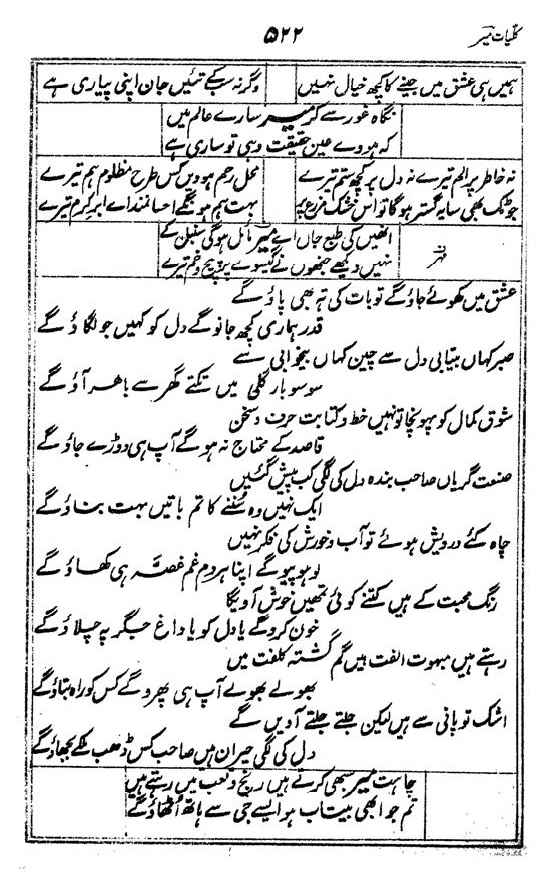 کلیات میر
۵۲۲
ہمیں ہی عشق میں جینے کا کچھ خیال نہیں
وگرنہ سب کے تئیں جان اپنی پیاری ہے
نگاہ غور سے کر میر سارے عالم میں
کہ ہووے عین حقیقت وہی تو ساری ہے
نہ خاطر پر الم تیرے نہ دل پر کچھ ستم تیرے
محل رحم ہوویں کس طرح مظلوم ہم تیرے
جو ٹک بھی سایہ گستر ہوگا تو اس خشک مزرع پر
بہت ہم ہونگے احسانمند اے ابر کرم تیرے
انھیں کی طبع جاں اے میر مائل ہوگی سنبل کے
نہیں دیکھے جنھوں نے گیسوے پر پیچ و خم تیرے
عشق میں کھوئے جاؤگے تو بات کی تہ بھی پاؤگے
قدر ہماری کچھ جانوگے دل کو کہیں جو لگاؤگے
صبر کہاں بیتابی دل سے چین کہاں بیخوابی سے
سو سو بار گلی میں تکتے گھر سے باہر آؤگے
شوق کمال کو پہونچا تو ہیں خط و کتابت حرف و سخن
قاصد کے محتاج نہ ہوگے آپ ہی دوڑے جاؤگے
صنعت گریاں صاحب بندہ دل کی لگی کب پیش گئیں
ایک نہیں وہ سننے کا تم باتیں بہت بناؤگے
چاہ کئے درویش ہوئے تو آب و خورش کی فکر نہیں
لوہو پیوگے اپنا ہردم غم غصہ ہی کھاؤگے
رنگ محبت کے ہیں کتنے کوئی تمھیں خوش آویگا
خون کروگے یا دل کو یا داغ جگر پہ جلاؤگے
رہتے ہیں مبہوت الفت میں گم گشتہ کلفت میں
بھولے بھولے آپ ہی پھروگے کس کو راہ بتاؤگے
اشک تو پانی سے ہیں لیکن جلتے جلتے آویں گے
دل کی لگی حیران ہیں صاحب کس ڈھب ملکے بجھاؤگے
چاہت میر سبھی کرتے ہیں رنج و تعب میں رہتے ہیں
تم جو ابھی بیتاب ہو ایسے جی سے ہاتھ اٹھاؤگے